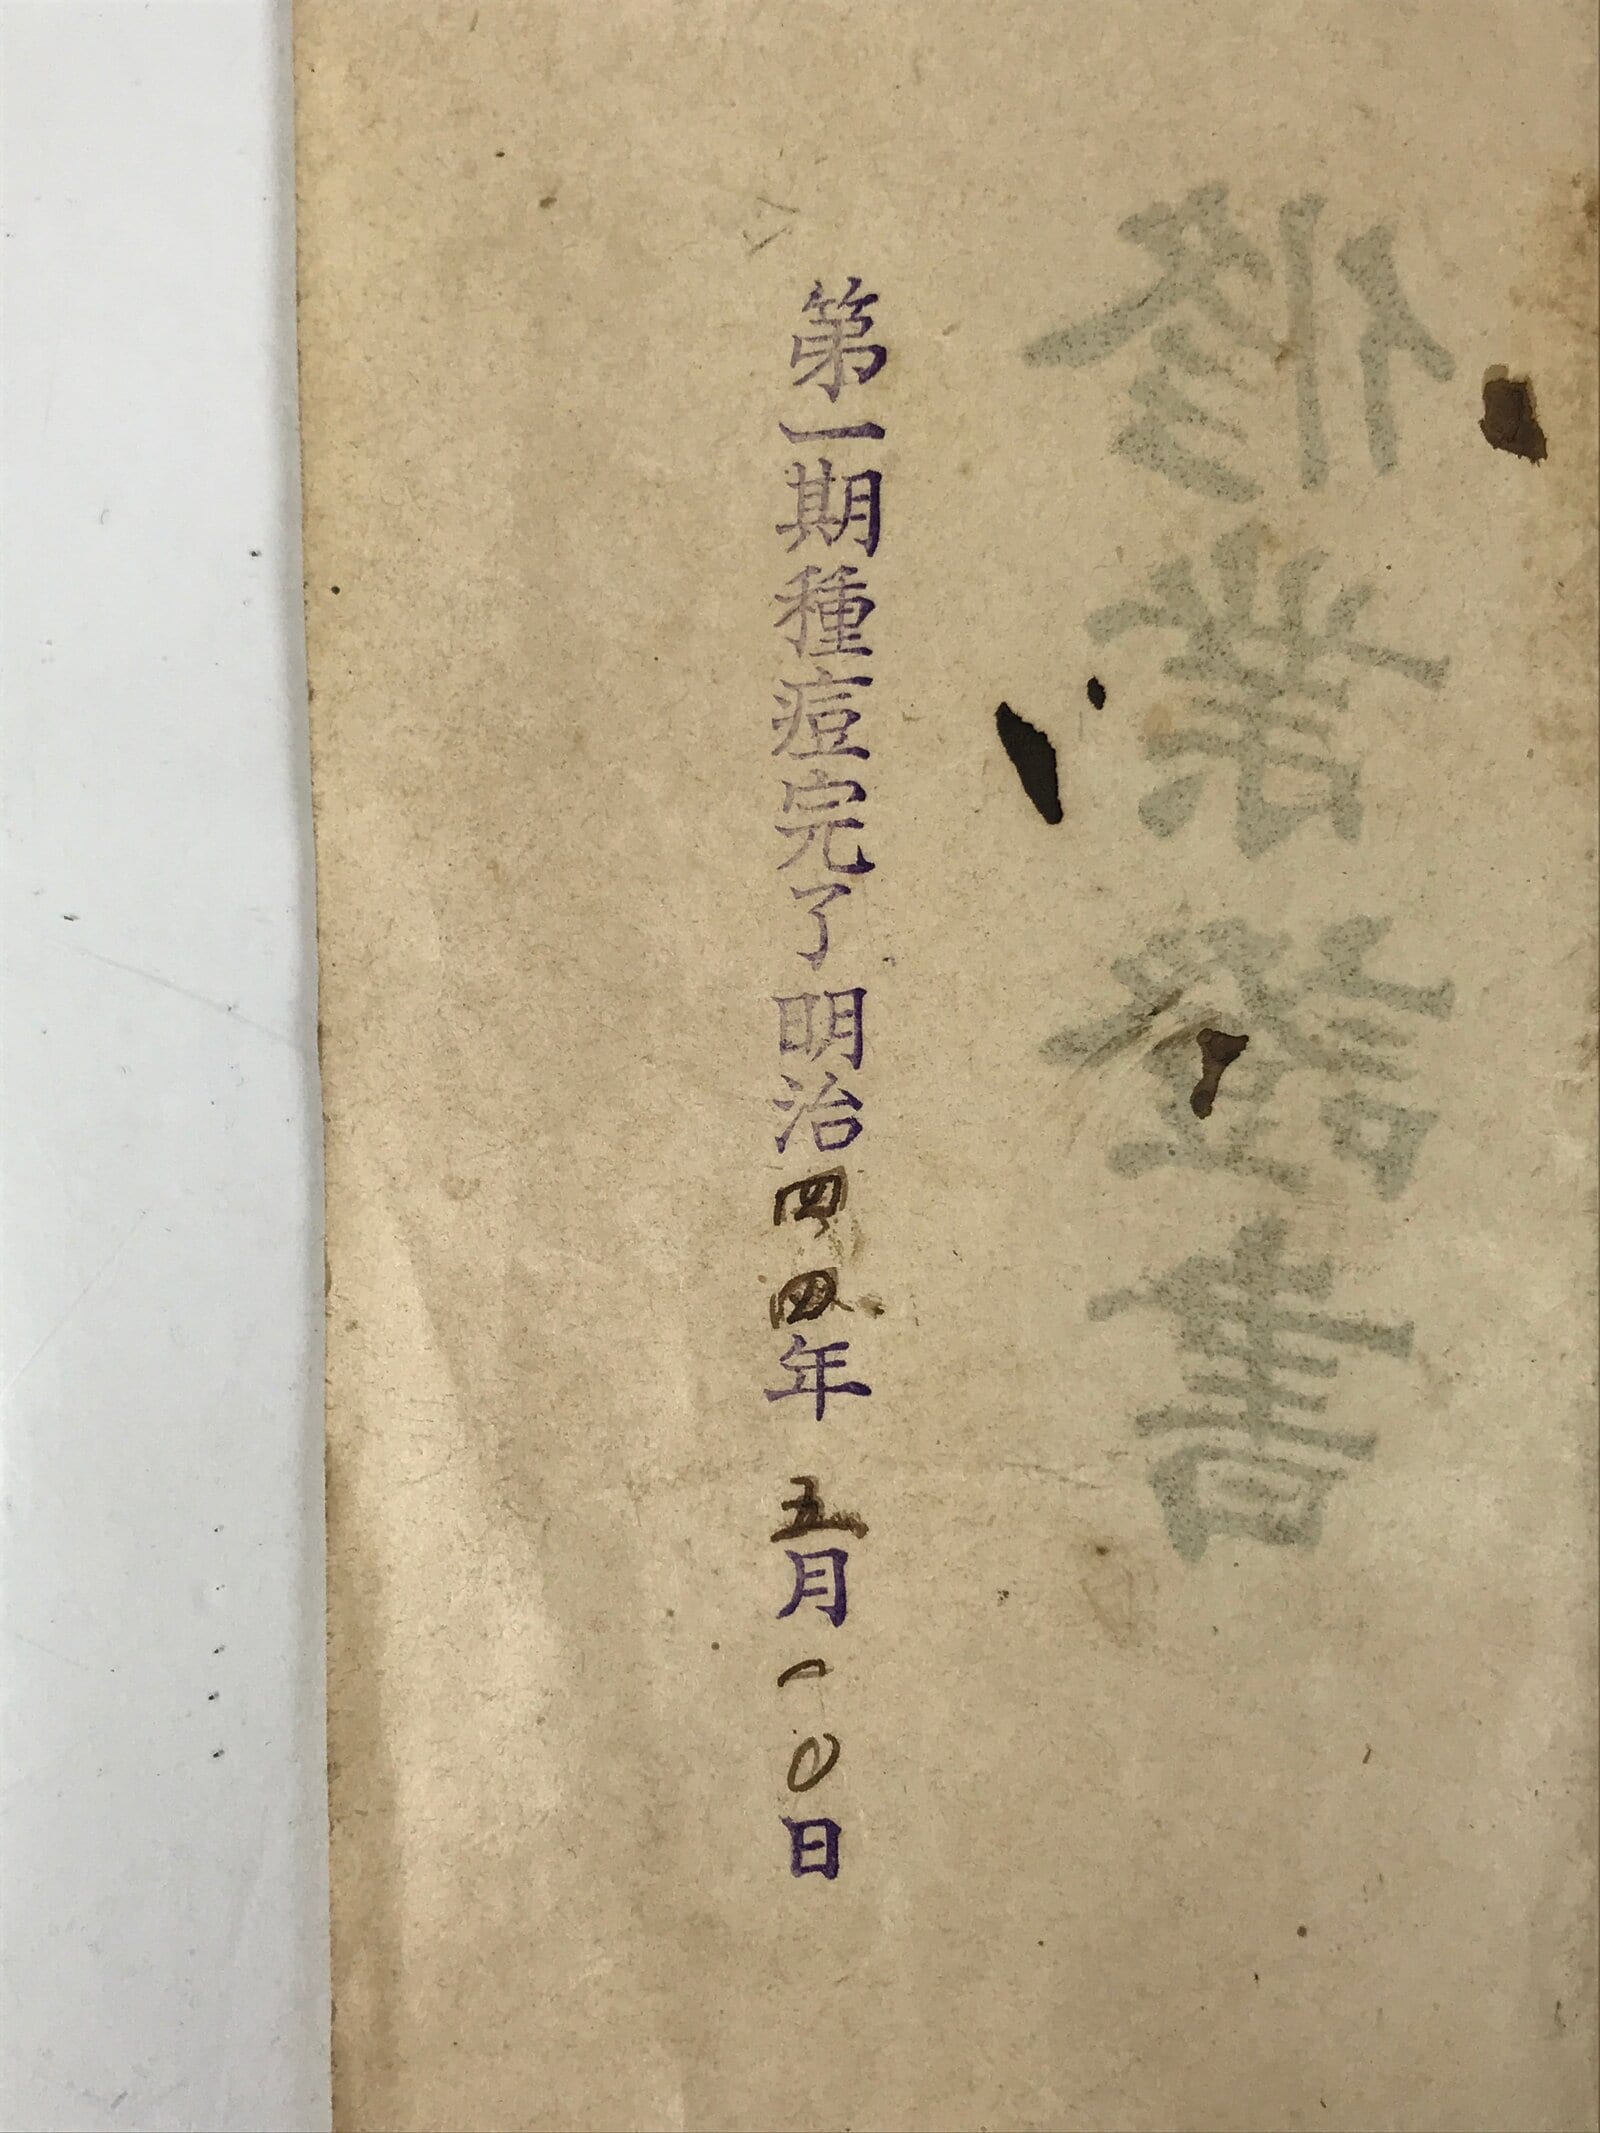 修業證書
第一期種痘完了明治四四年五月一〇日